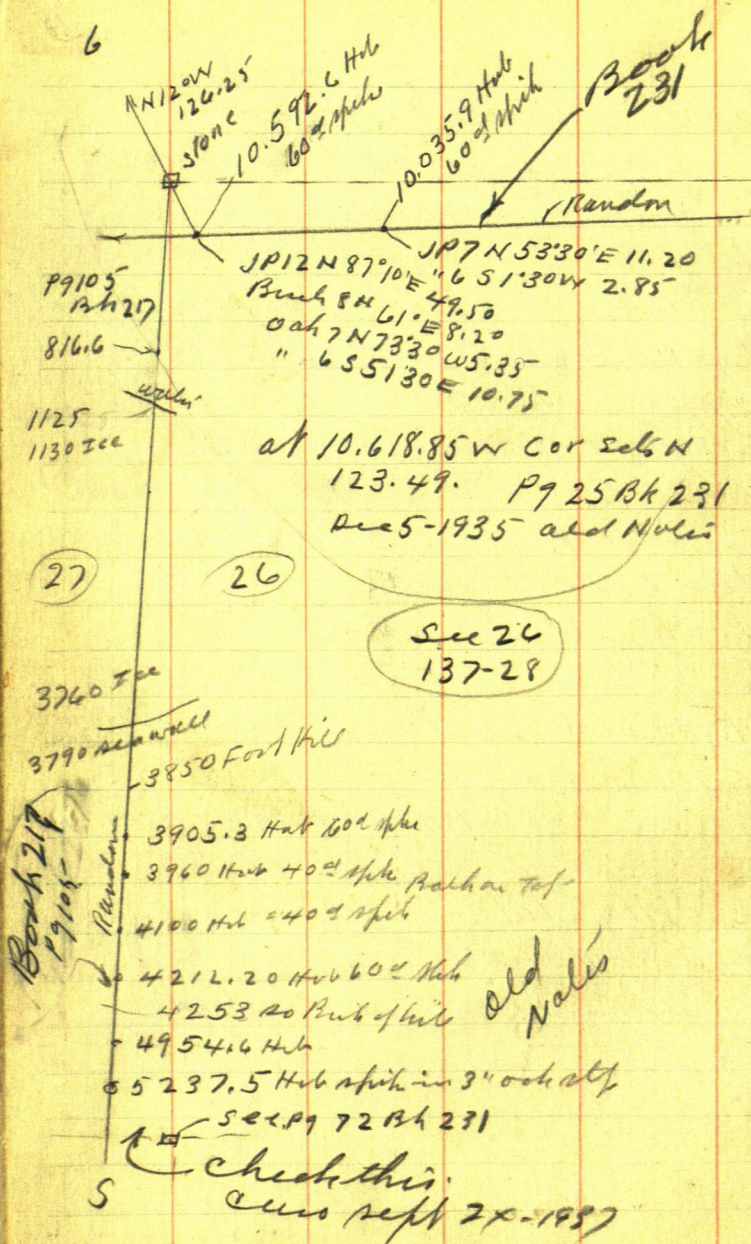 6
N12°W
126.25
Stone
10.592.6 Hub
60d spike
10.035.9 Hub
60d spik
Book
231
Random
JP 7 N 53°30'E 11.20
" 6 S 1°30W 2.85
JP 12 N 87°10'E 49.50
Birch 8 N 61° E 8.20
Oak 7 N 73°30 W 5.35
" 6 S 51 30 E 10.75
P9105
Bk 217
816.6
1125
1130 Ice
at 10.618.85 W Cor sets N
123.49. Pg 25 Bk 231
Dec 5-1935 old Notes
27
26
See 26
137-28
3760 Ice
3790 sea wall
3850 Foot Hill
Book 217
P9105
Random
3905.3 Hub 60d spke
3960 Hub 40d spk
4100 Hub =40d spik
4212.20 Hub 60d spk
4253 so of hill
4954.6 Hub
5237.5 Hub spik in 3" oak stp
old
Notes
See Pg 72 Bk 231
S
Check this.
sept 2x-1937